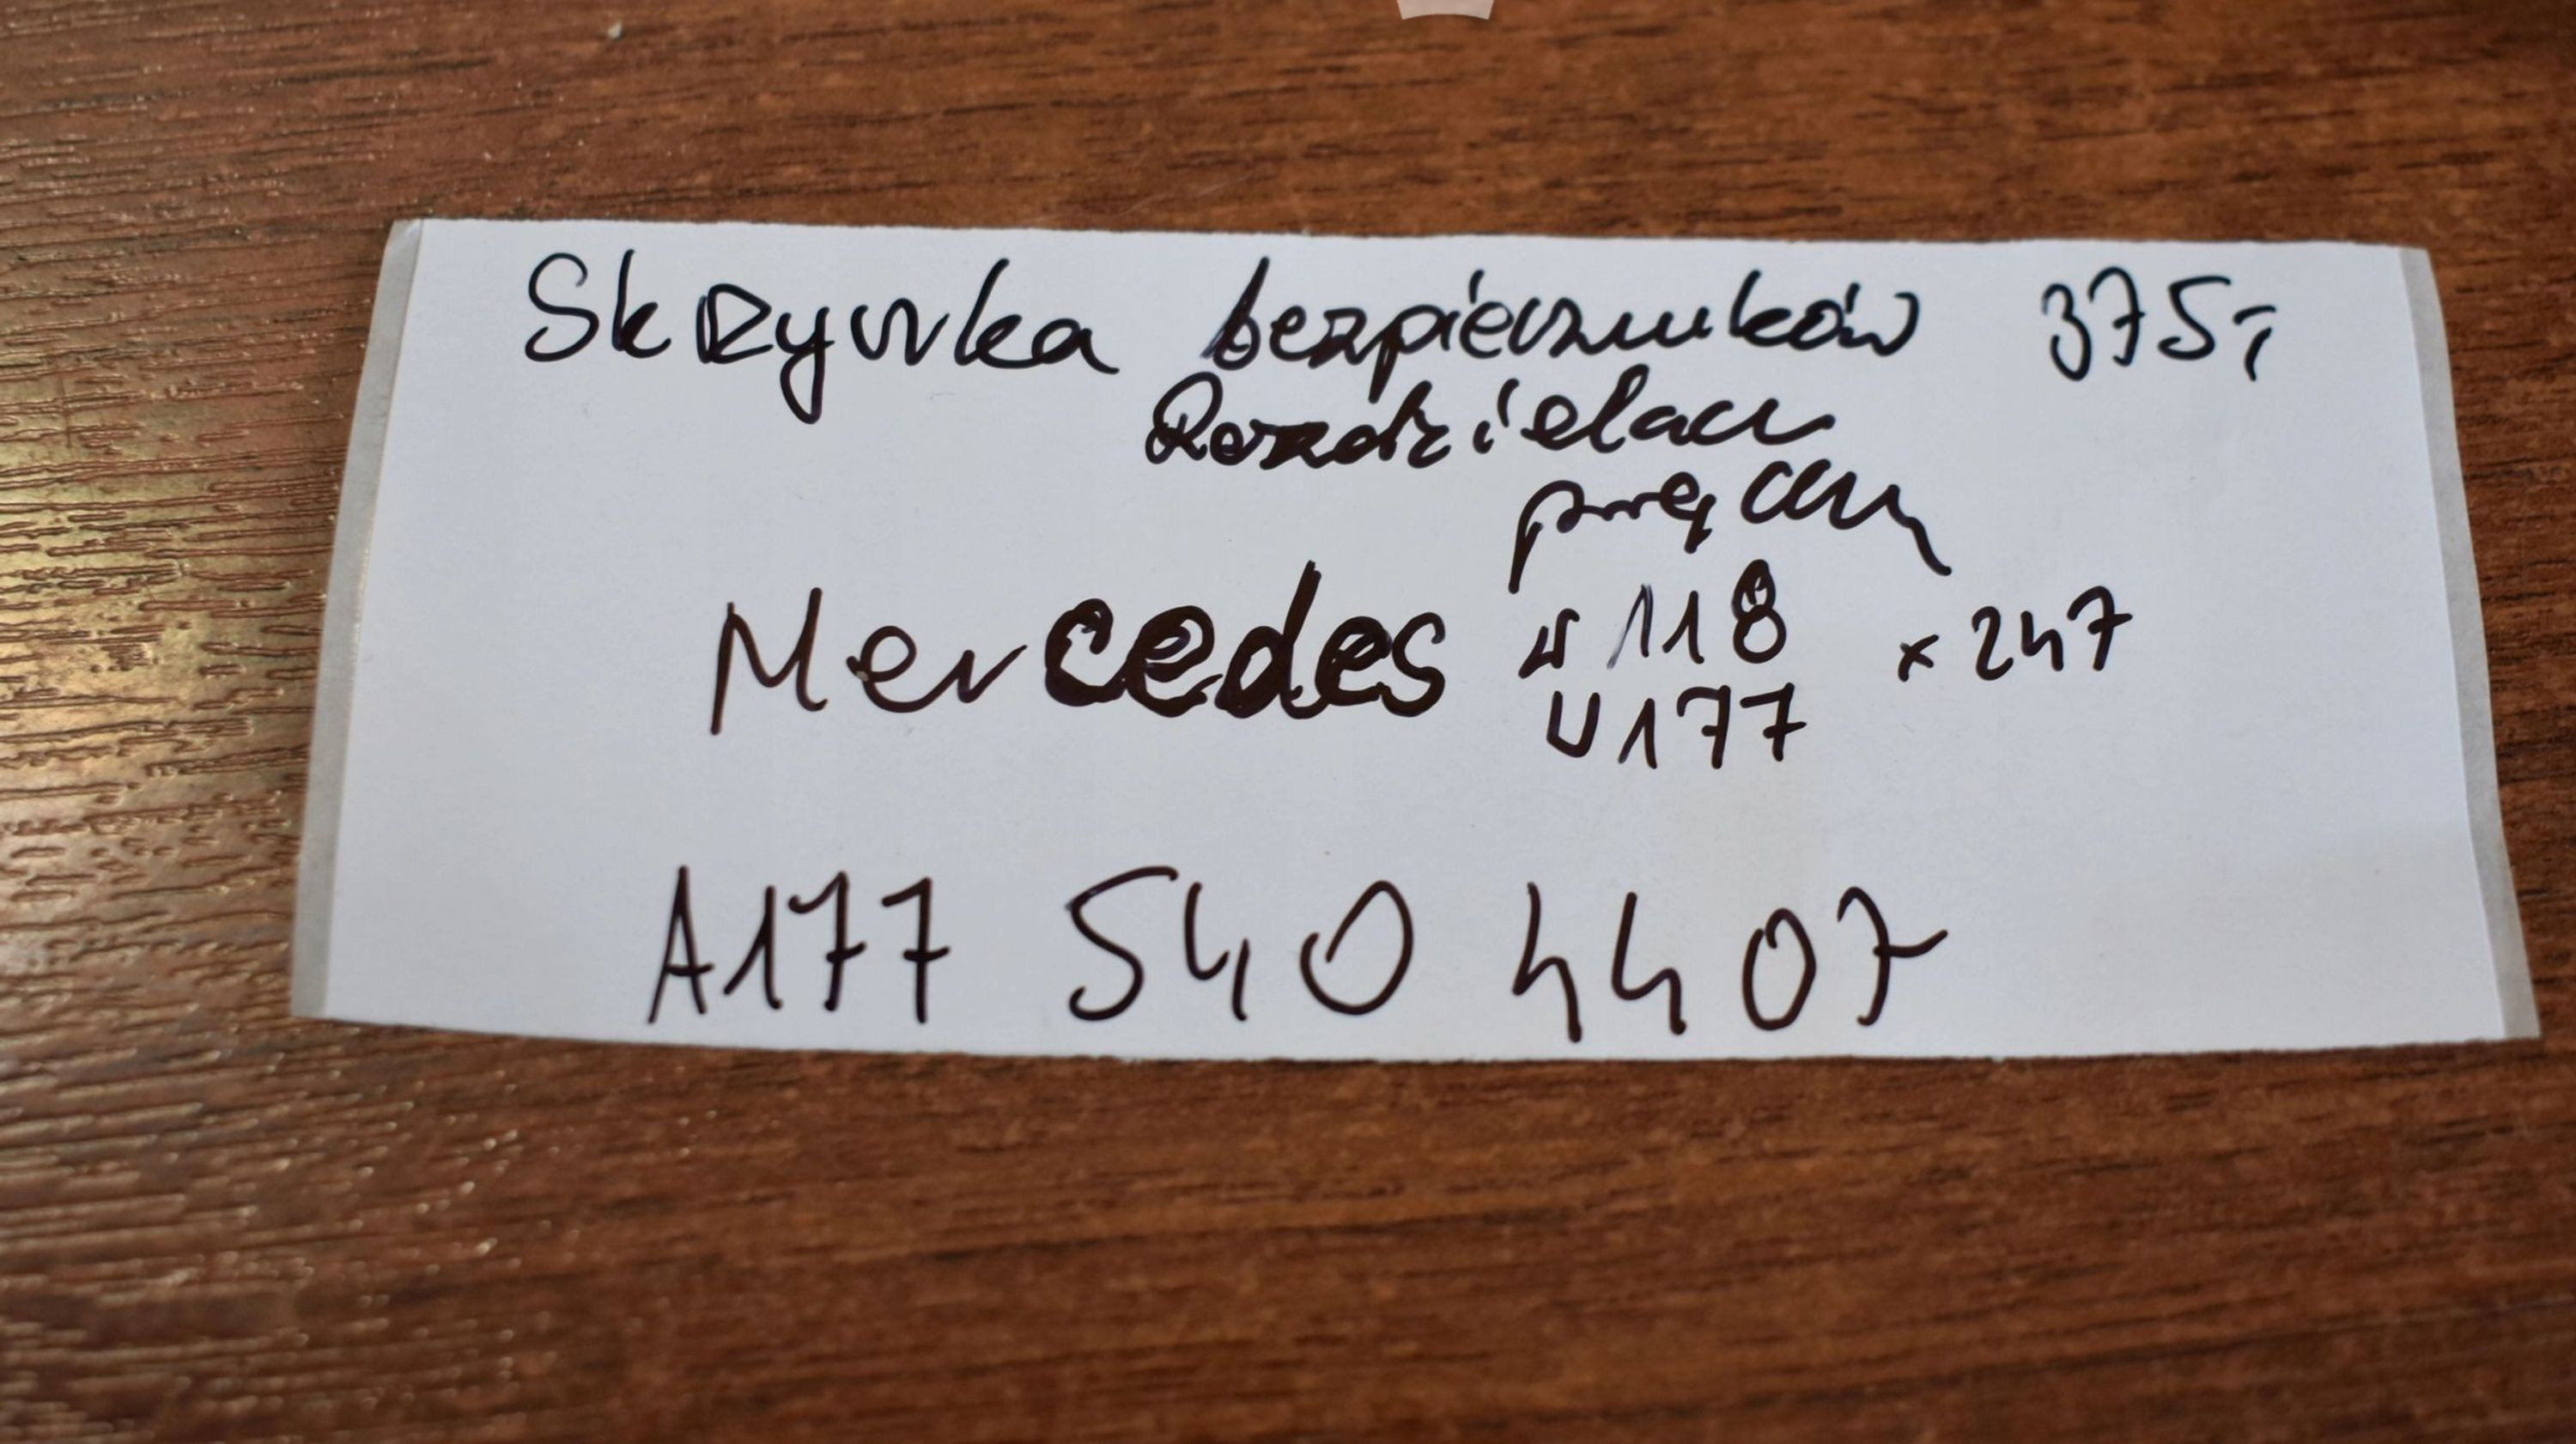 Skrzynka bezpieczników 375,-
Rozdzielacz
Mercedes W118 x247
W177
A177 540 4407